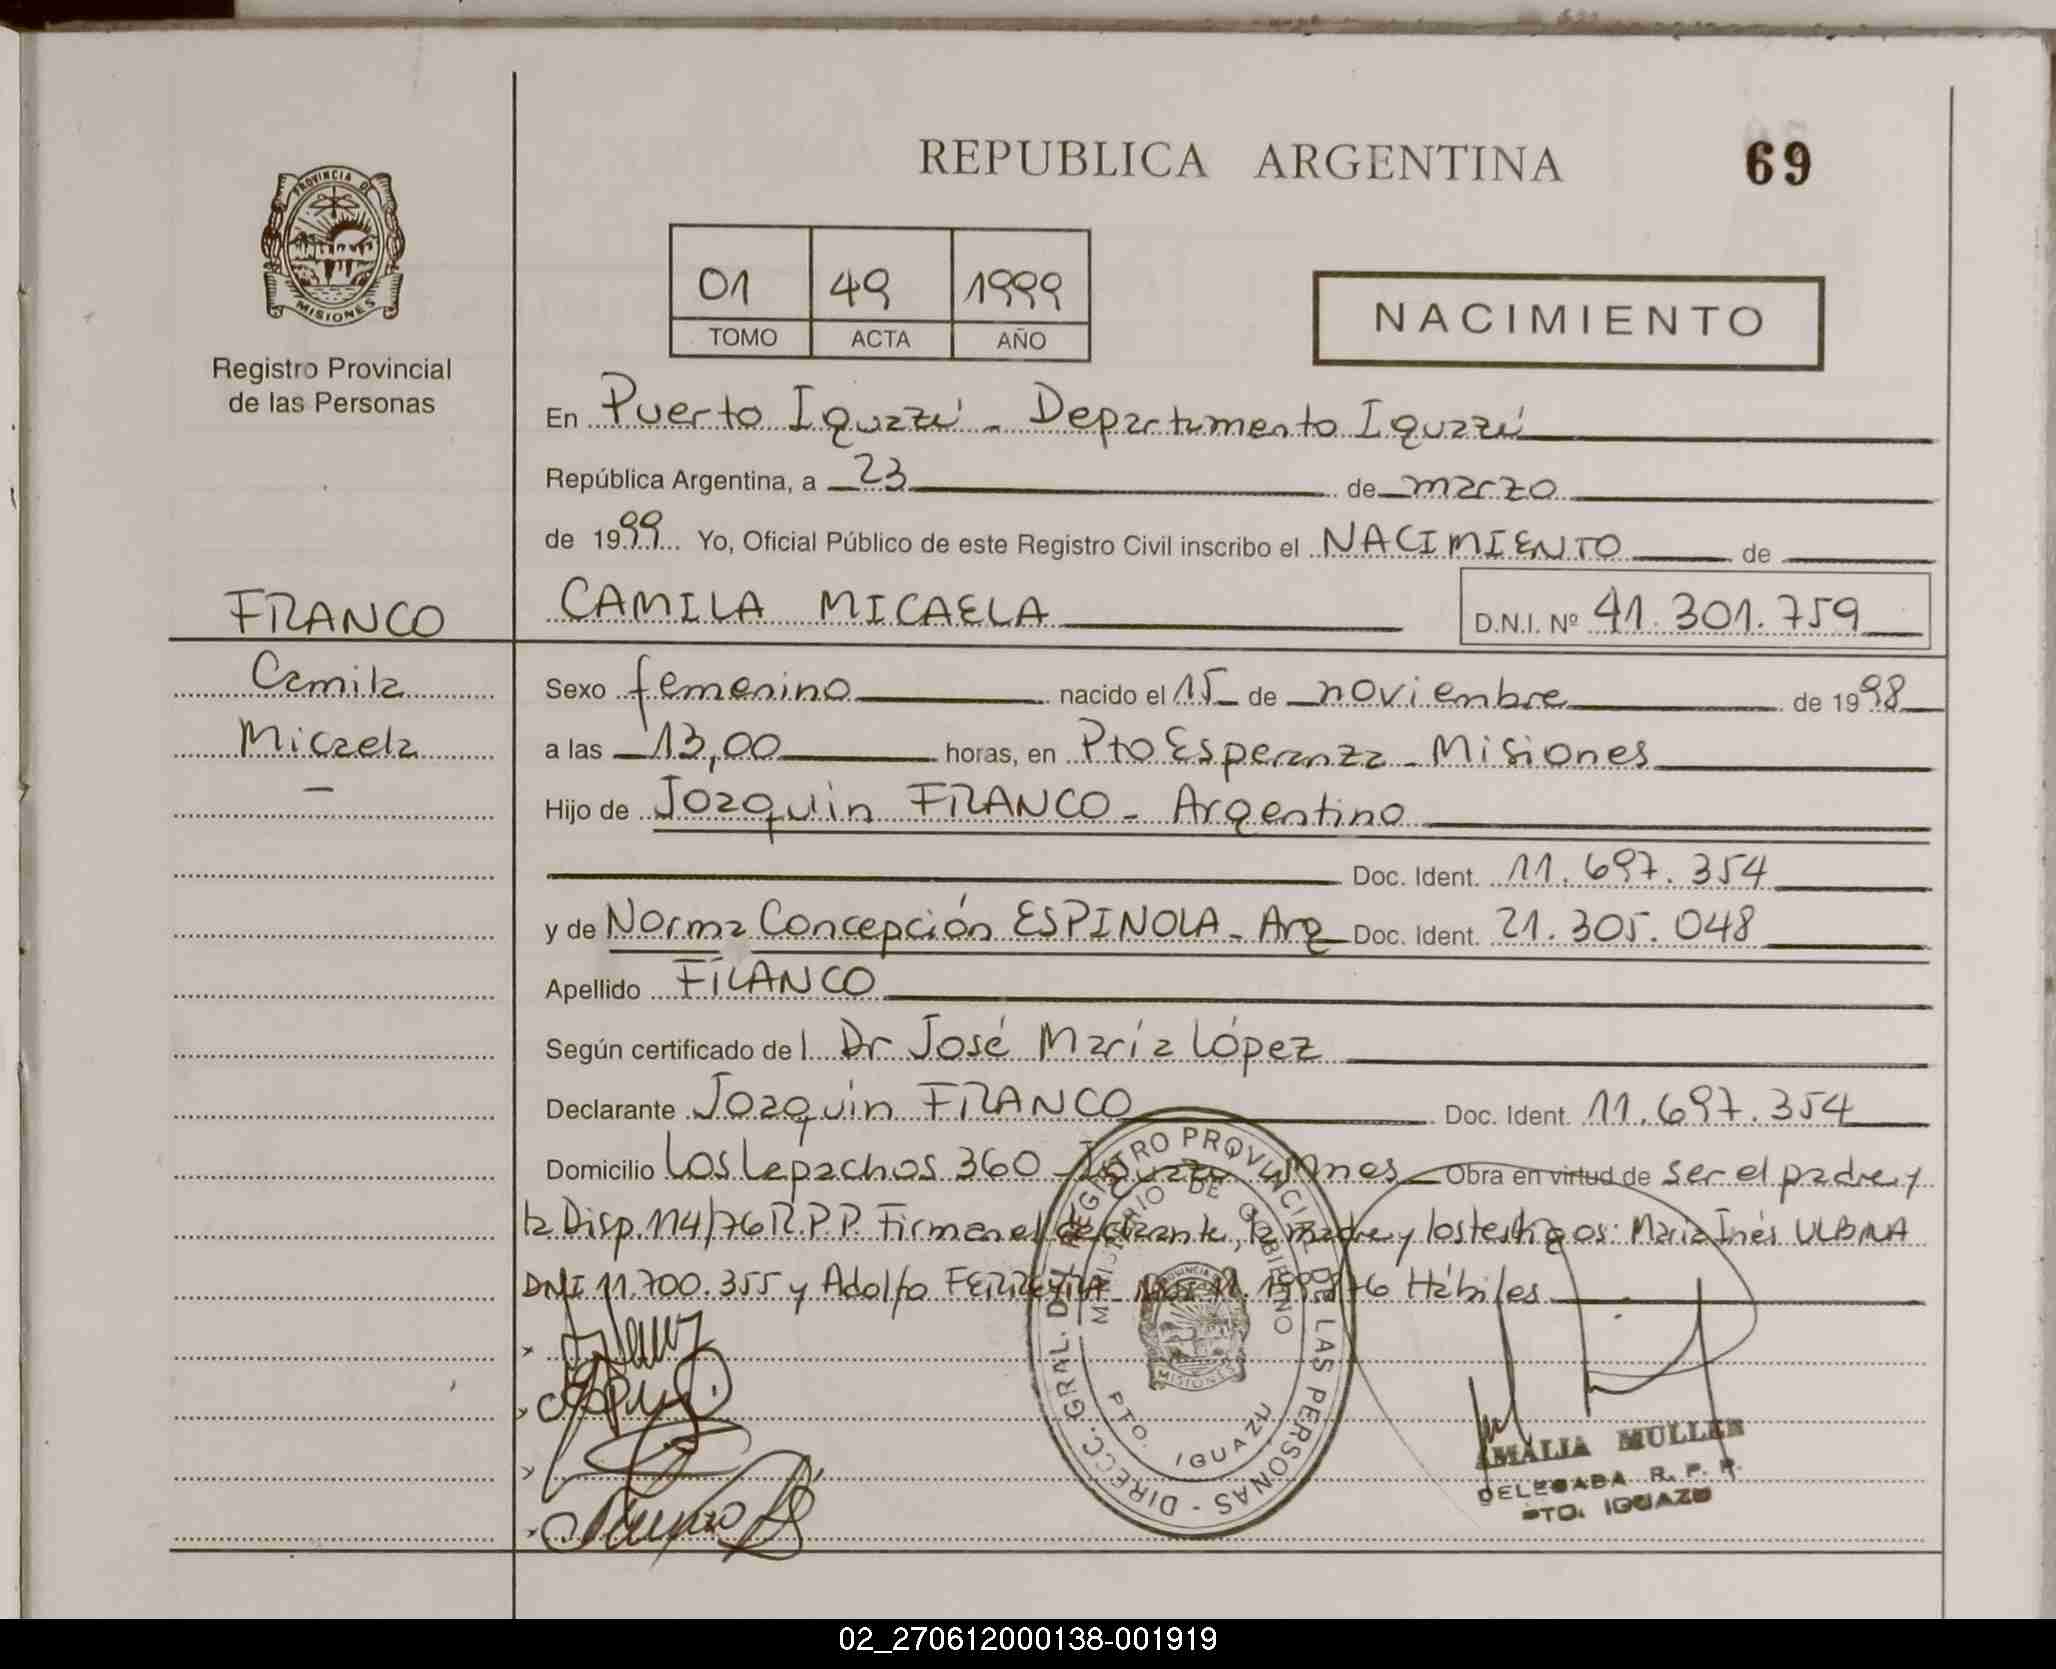 REPUBLICA ARGENTINA
69
PROVINCIA DE
MISIONES
Registro Provincial
de las Personas
01 49 1999
TOMO ACTA AÑO
NACIMIENTO
En Puerto Iguazú - Departamento Iguazú
República Argentina, a 23 de marzo
de 1999 Yo, Oficial Público de este Registro Civil inscribo el NACIMIENTO de
FRANCO
CAMILA MICAELA D.N.I. Nº 41.301.759
Camila
Micaela
Sexo femenino nacido el 15 de noviembre de 1998
a las 13,00 horas, en Pto Esperanza - Misiones
Hijo de Joaquin FRANCO - Argentino
Doc. Ident. 11.697.354
y de Norma Concepción ESPINOLA - Arg Doc. Ident. 21.305.048
Apellido FRANCO
Según certificado del Dr José María López
Declarante Joaquin FRANCO Doc. Ident. 11.697.354
Domicilio Los Lapachos 360 - Iguazu - Mnes Obra en virtud de ser el padre y
la Disp. 114/76 R.P.P. Firman el declarante, la madre y los testigos: Maria Inés
DNI 11.700.355 y Adolfo FERREYRA Hábiles
DIRECC. GRAL. DEL REGISTRO PROVINCIAL DE LAS PERSONAS -
MINISTERIO DE GOBIERNO
PROVINCIA DE
MISIONES
PTO. IGUAZU
AMALIA MULLER
DELEGADA R. P. P.
PTO. IGUAZU
02_270612000138-001919